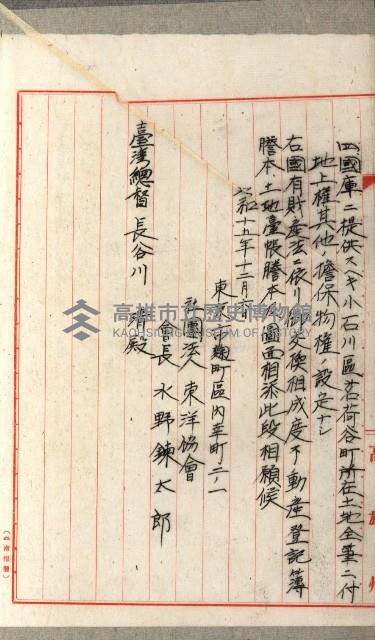 四、國庫ニ提供スベキ小石川區茗荷谷町所在土地全筆ニ付
地上權其他ノ擔保物權ノ設定ナシ
右國有財産法ニ依リ御交換相成度不動産登記簿
謄本、土地臺帳謄本、圖面相添此段相願候
昭和十五年十二月 日
東京市麹町區內幸町二ノ一
社團法人東洋協會
會長 水野鍊太郎
臺灣總督 長谷川 清殿
高雄市立歷史博物館
KAOHSIUNG MUSEUM OF HISTORY
高雄州